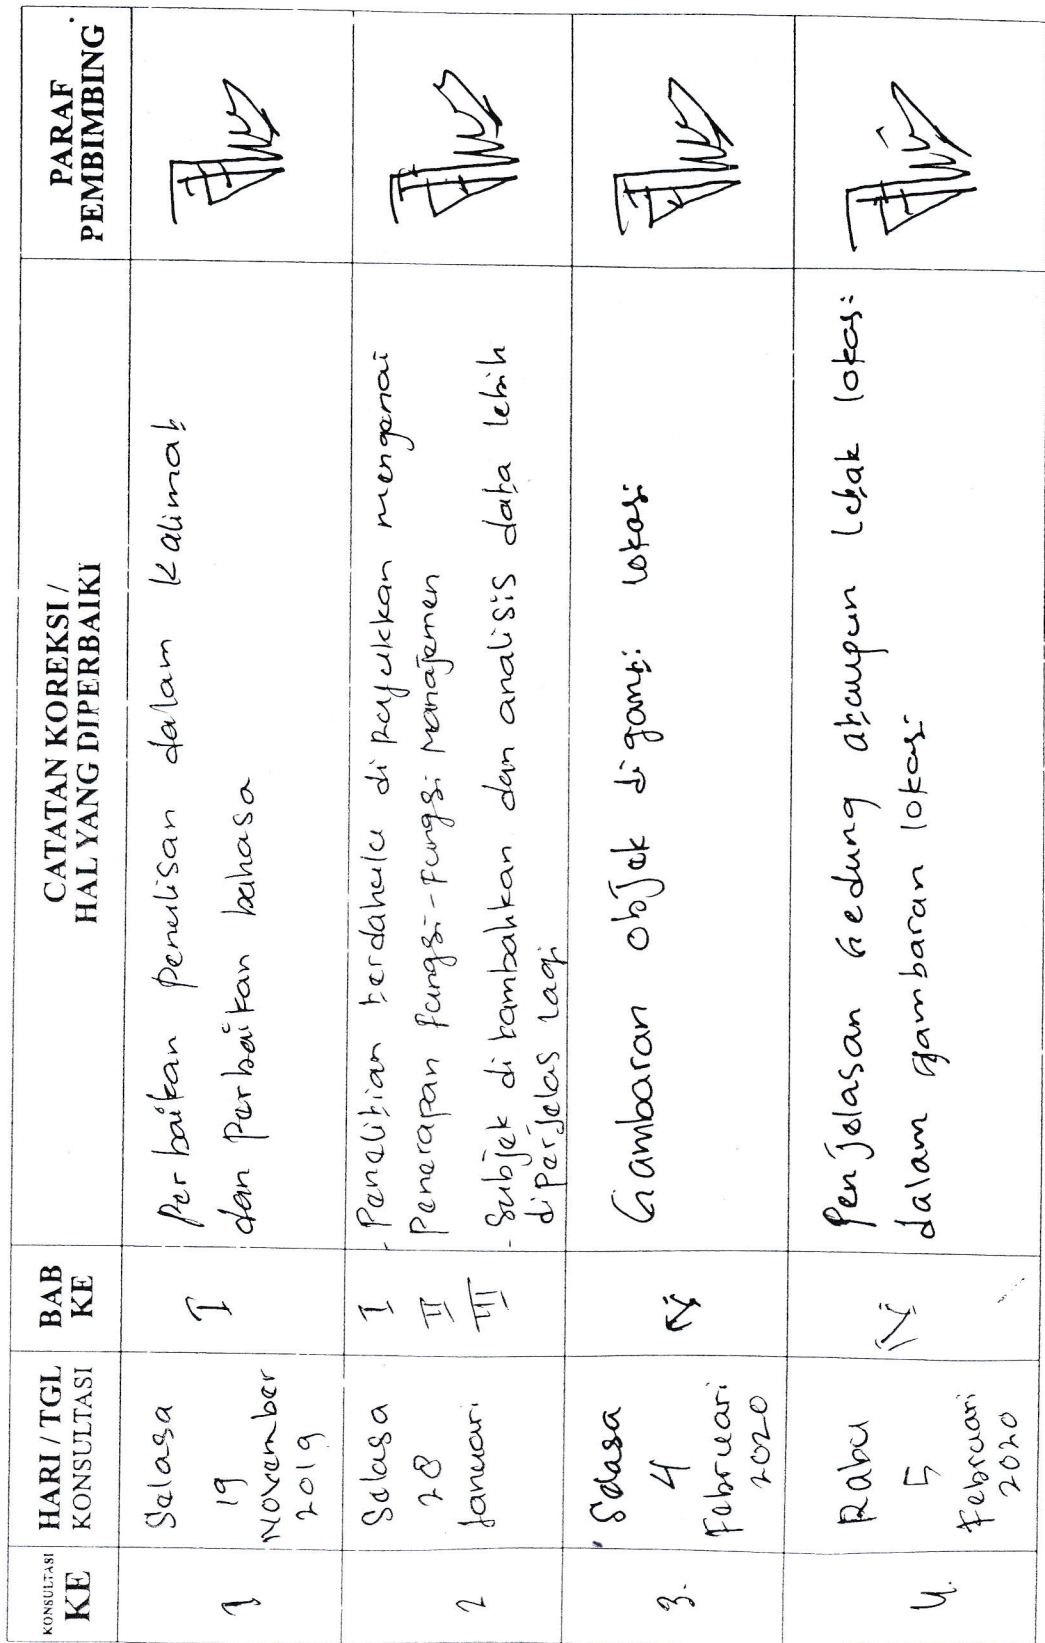 KONSULTASI
KE
HARI / TGL
KONSULTASI
BAB
KE
CATATAN KOREKSI /
HAL YANG DIPERBAIKI
PARAF
PEMBIMBING
1
Selasa
19
November
2019
I
Perbaikan penulisan dalam kalimat
dan Perbaikan bahasa
2
Selasa
28
Januari
I
II
III
- Penelitian terdahulu di
mengenai
Penerapan fungsi-fungsi Manajemen
- Subjek di tambahkan dan analisis data lebih
diperjelas lagi
3.
Selasa
4
Februari
2020
IV
Gambaran objek diganti lokasi
4.
Rabu
5
Februari
2020
IV
Penjelasan Gedung ataupun letak lokasi
dalam gambaran lokasi